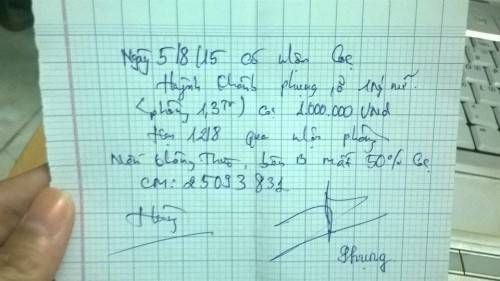 Ngày 5/8/15 có nhận Cọc
Huỳnh Thanh Phụng, ở 1 nữ.
(phòng 1,3tr) Cọc 1.000.000 VND
Hẹn 12/8 qua nhận phòng
Nếu không Thuê, bên B mất 50% Cọc
CM: 25093832
Phụng